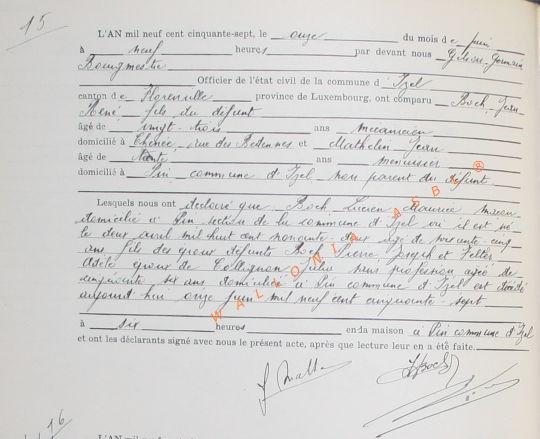 15
L'AN mil neuf cent cinquante-sept, le onze du mois de juin
à neuf heures par devant nous Germain
Bourgmestre
Officier de l'état civil de la commune d'Izel
canton de Florenville province de Luxembourg, ont comparu Boch, Jean
René, fils du défunt
âgé de vingt-trois ans mécanicien
domicilié à rue des et Mathelin Jean
âgé de trente ans menuisier
domicilié à Pin commune d'Izel non parent du défunt
Lesquels nous ont déclaré que Boch, Lucien Maurice
domicilié à Pin section de la commune d'Izel où il est né
le deux avril mil huit cent nonante-deux âgé de soixante cinq
ans fils des époux défunts Boch Pierre Joseph et Feller,
Adèle époux de Collignon Julia sans profession âgée de
cinquante six ans domiciliée à Pin commune d'Izel est décédé
aujourd'hui onze juin mil neuf cent cinquante sept
à six heures en da maison à Pin commune d'Izel
et ont les déclarants signé avec nous le présent acte, après que lecture leur en a été faite.
WALLONIA ASBL ®
J Math
JRBoch
16
L'AN mil neuf cent